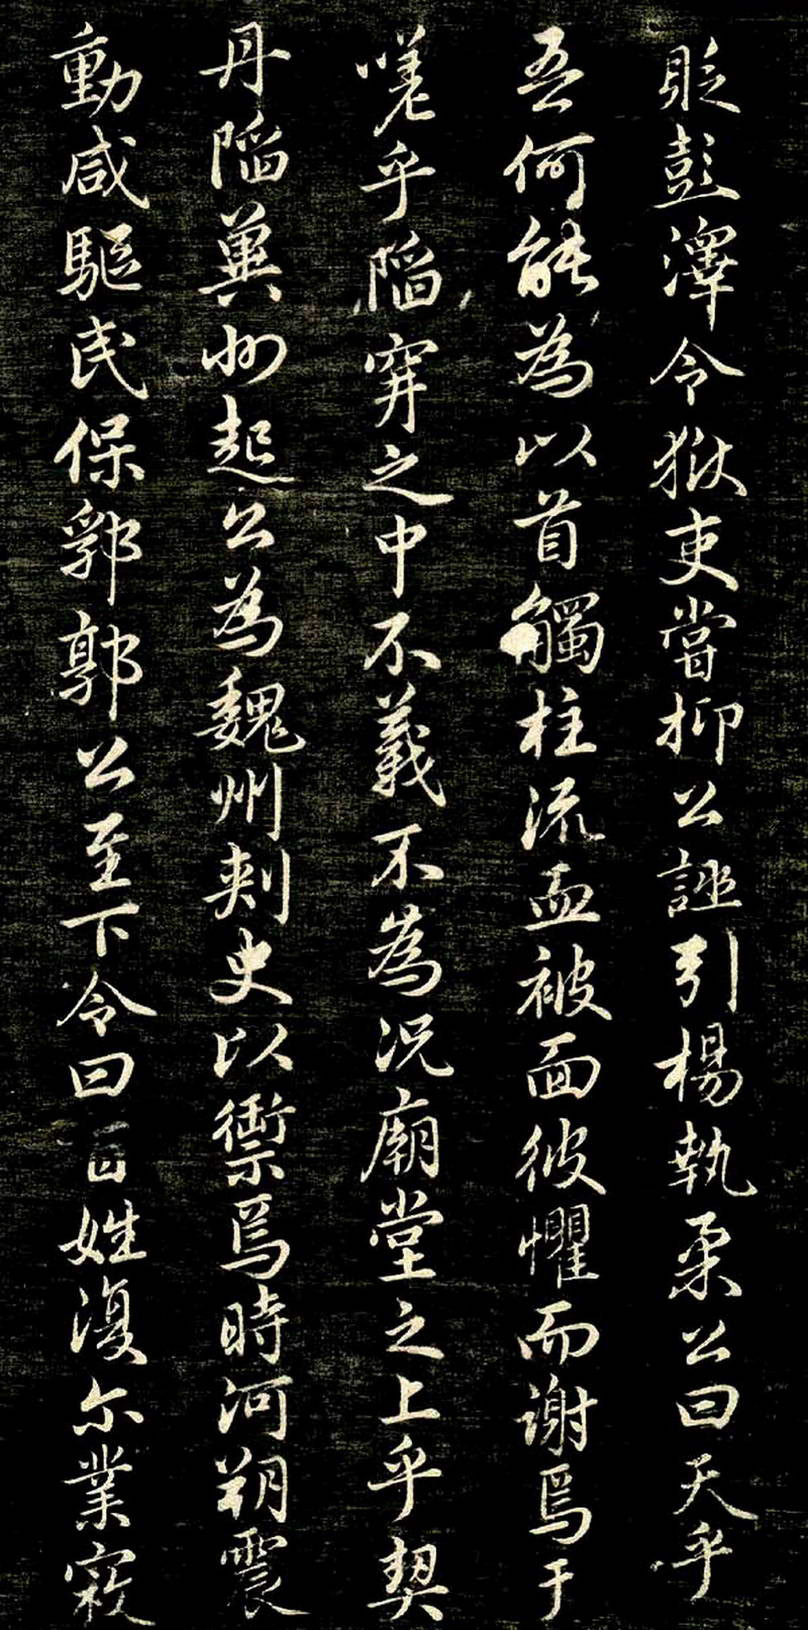 貶彭澤令獄吏嘗抑公誣引楊執柔公曰天乎
吾何能為以首觸柱流血被面彼懼而謝焉于
嗟乎陷穽之中不義不為況廟堂之上乎契
丹陷冀州起公為魏州刺史以禦焉時河朔震
動咸驅民保郛郭公至下令曰百姓復尓業寇